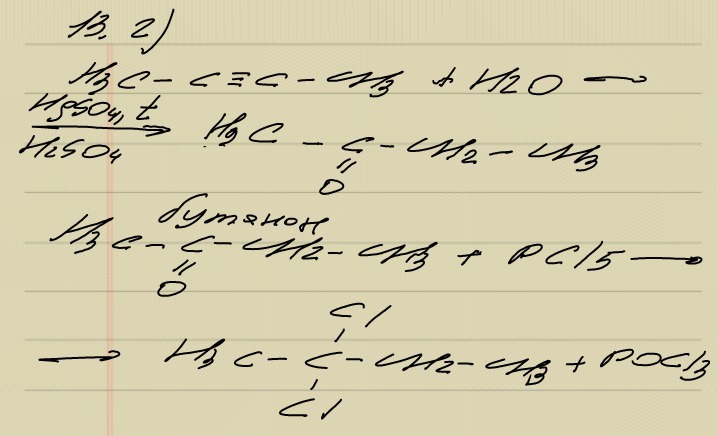 13. 2)
H3C - C ≡ C - CH3 + H2O →
HgSO4, t
H2SO4
H3C - C - CH2 - CH3
=
O
бутанон
H3C - C - CH2 - CH3 + PCl5 →
=
O
Cl
→ H3C - C - CH2 - CH3 + POCl3
Cl